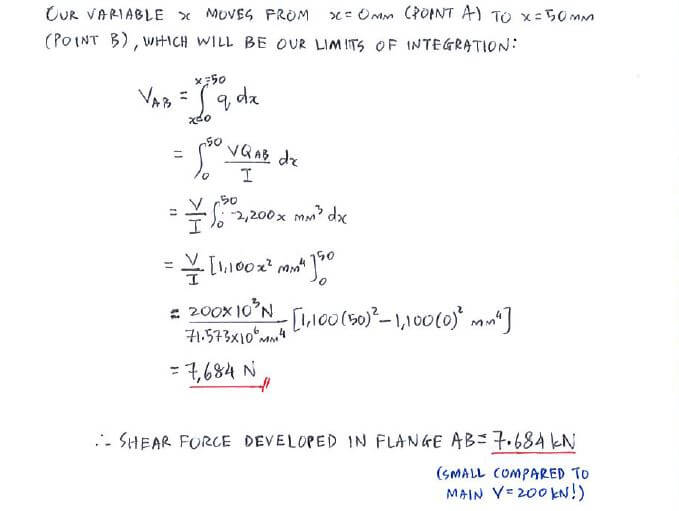 OUR VARIABLE x MOVES FROM x=0mm (POINT A) TO x=50mm
(POINT B), WHICH WILL BE OUR LIMITS OF INTEGRATION:
V_AB = ∫_{x=0}^{x=50} q dx
= ∫_0^50 VQ_AB/I dx
= V/I ∫_0^50 2,200x mm³ dx
= V/I [1,100x² mm⁴]_0^50
= 200×10³N / 71.573×10⁶mm⁴ [1,100(50)² – 1,100(0)² mm⁴]
= 7,684 N
∴ SHEAR FORCE DEVELOPED IN FLANGE AB = 7.684 kN
(SMALL COMPARED TO
MAIN V=200kN!)